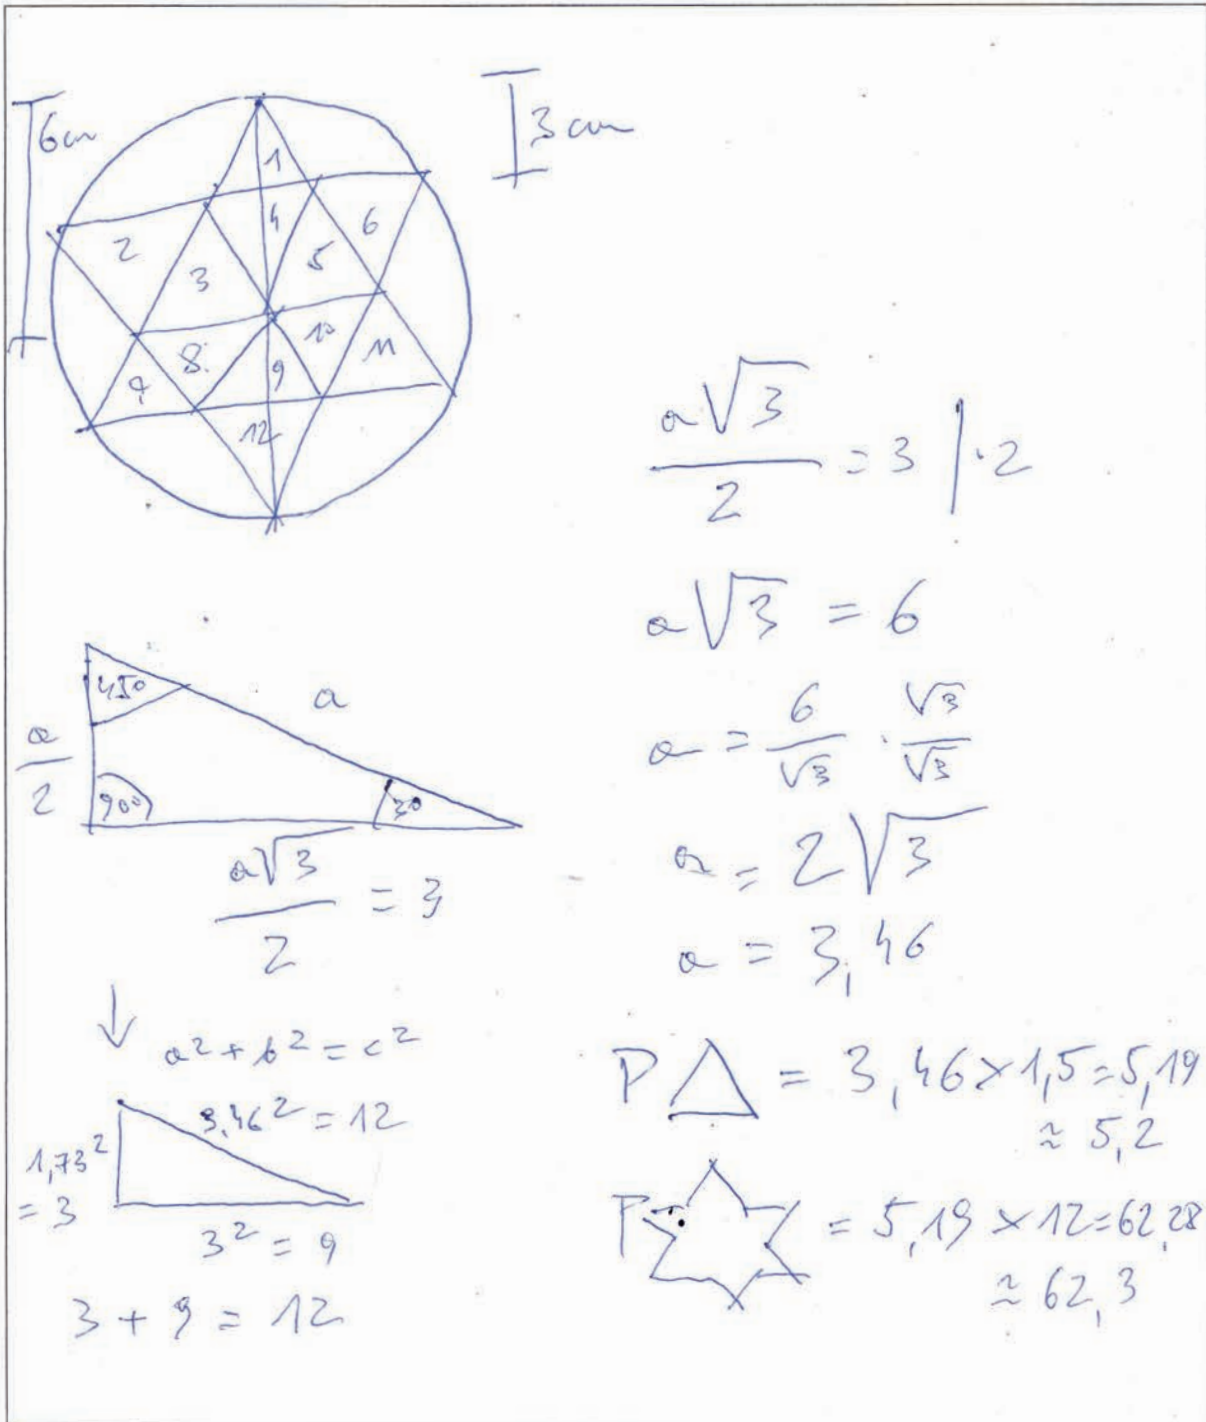 6cm
3 cm
1
2
3
4
5
6
7
8
9
10
11
12
450
a
a/2
900
30
a√3/2 = 3
↓ a² + b² = c²
3,46² = 12
1,73²
= 3
3² = 9
3 + 9 = 12
a√3/2 = 3 | ·2
a√3 = 6
a = 6/√3 · √3/√3
a = 2√3
a = 3,46
P△ = 3,46 × 1,5 = 5,19
≈ 5,2
P = 5,19 × 12 = 62,28
≈ 62,3